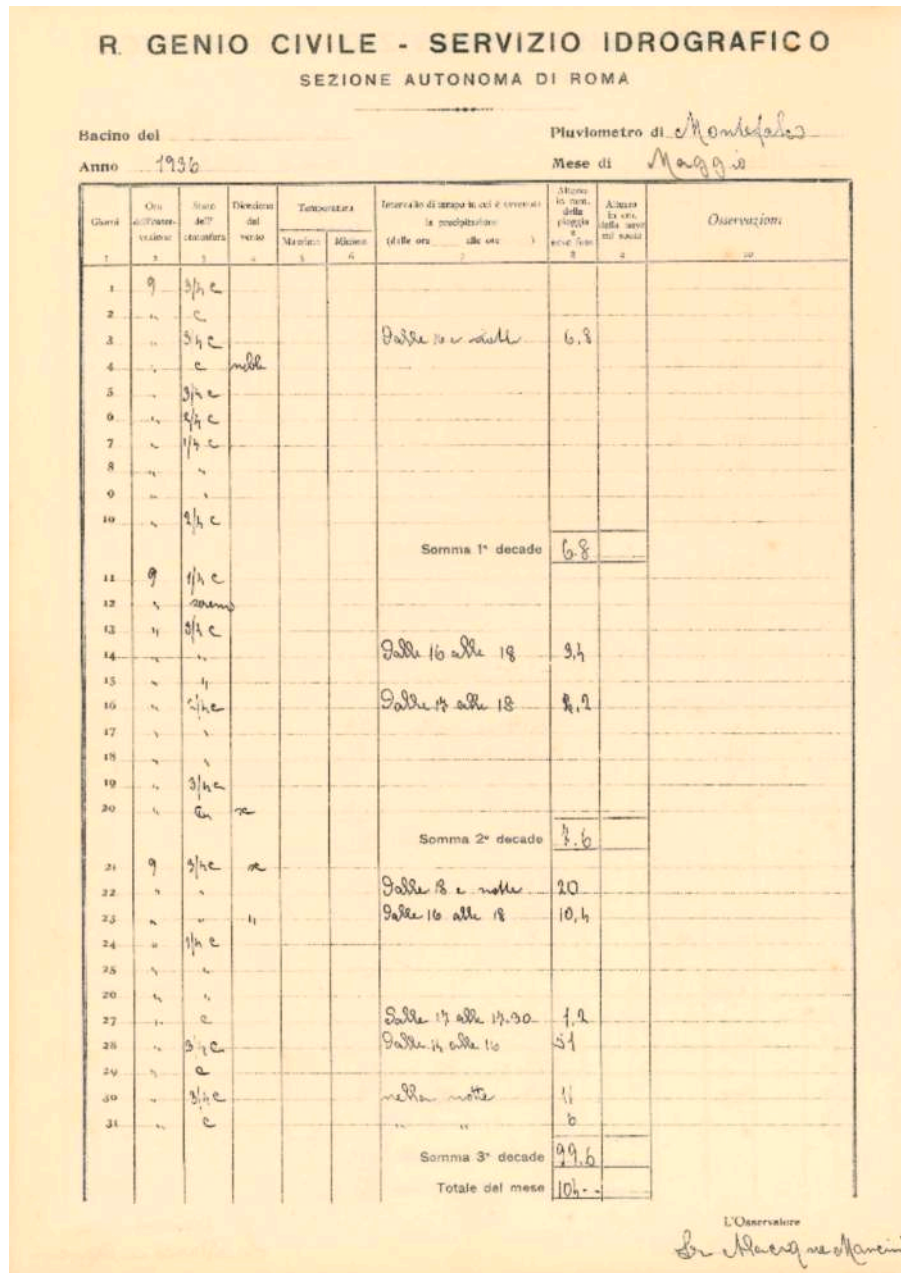 R. GENIO CIVILE - SERVIZIO IDROGRAFICO
SEZIONE AUTONOMA DI ROMA
Bacino del
Pluviometro di Montefalco
Anno 1936
Mese di Maggio
Giorni Ora dell'osservazione Stato dell'atmosfera Direzione del vento Temperatura Massima Minima Intervallo di tempo in cui è avvenuta la precipitazione (dalle ore alle ore ) Altezza in mm. della pioggia e neve fusa Altezza in cm. della neve sul suolo Osservazioni
1 2 3 4 5 6 7 8 9 10
1 9 3/4 c
2 " c
3 " 3/4 c Dalle 16 e notte 6,8
4 " c
5 " 3/4 c
6 " 2/4 c
7 " 1/4 c
8 " "
9 " "
10 " 2/4 c
Somma 1ª decade 6.8
11 9 1/4 c
12 " sereno
13 " 3/4 c
14 " " Dalle 16 alle 18 3,4
15 " "
16 " 2/4 c Dalle 17 alle 18 4,2
17 " "
18 " "
19 " 3/4 c
20 "
Somma 2ª decade 7.6
21 9 3/4 c
22 " " Dalle 18 e notte 20
23 " " " Dalle 16 alle 18 10,4
24 " 1/4 c
25 " "
26 " "
27 " c Dalle 17 alle 17.30 1,2
28 " 3/4 c Dalle 14 alle 16 51
29 " c
30 " 3/4 c nella notte 11
31 " c " " 6
Somma 3ª decade 99.6
Totale del mese 104 - -
L'Osservatore
Mancini